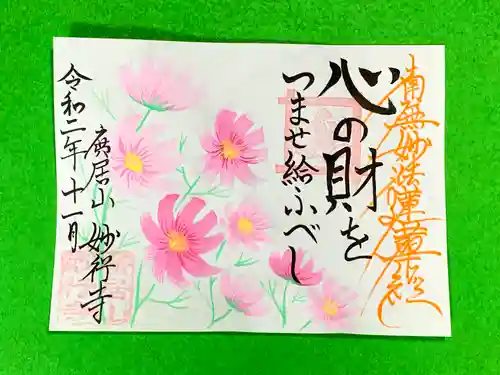 南無妙法蓮華経
心の財を
つませ給ふべし
廣居山 妙行寺
令和二年十一月